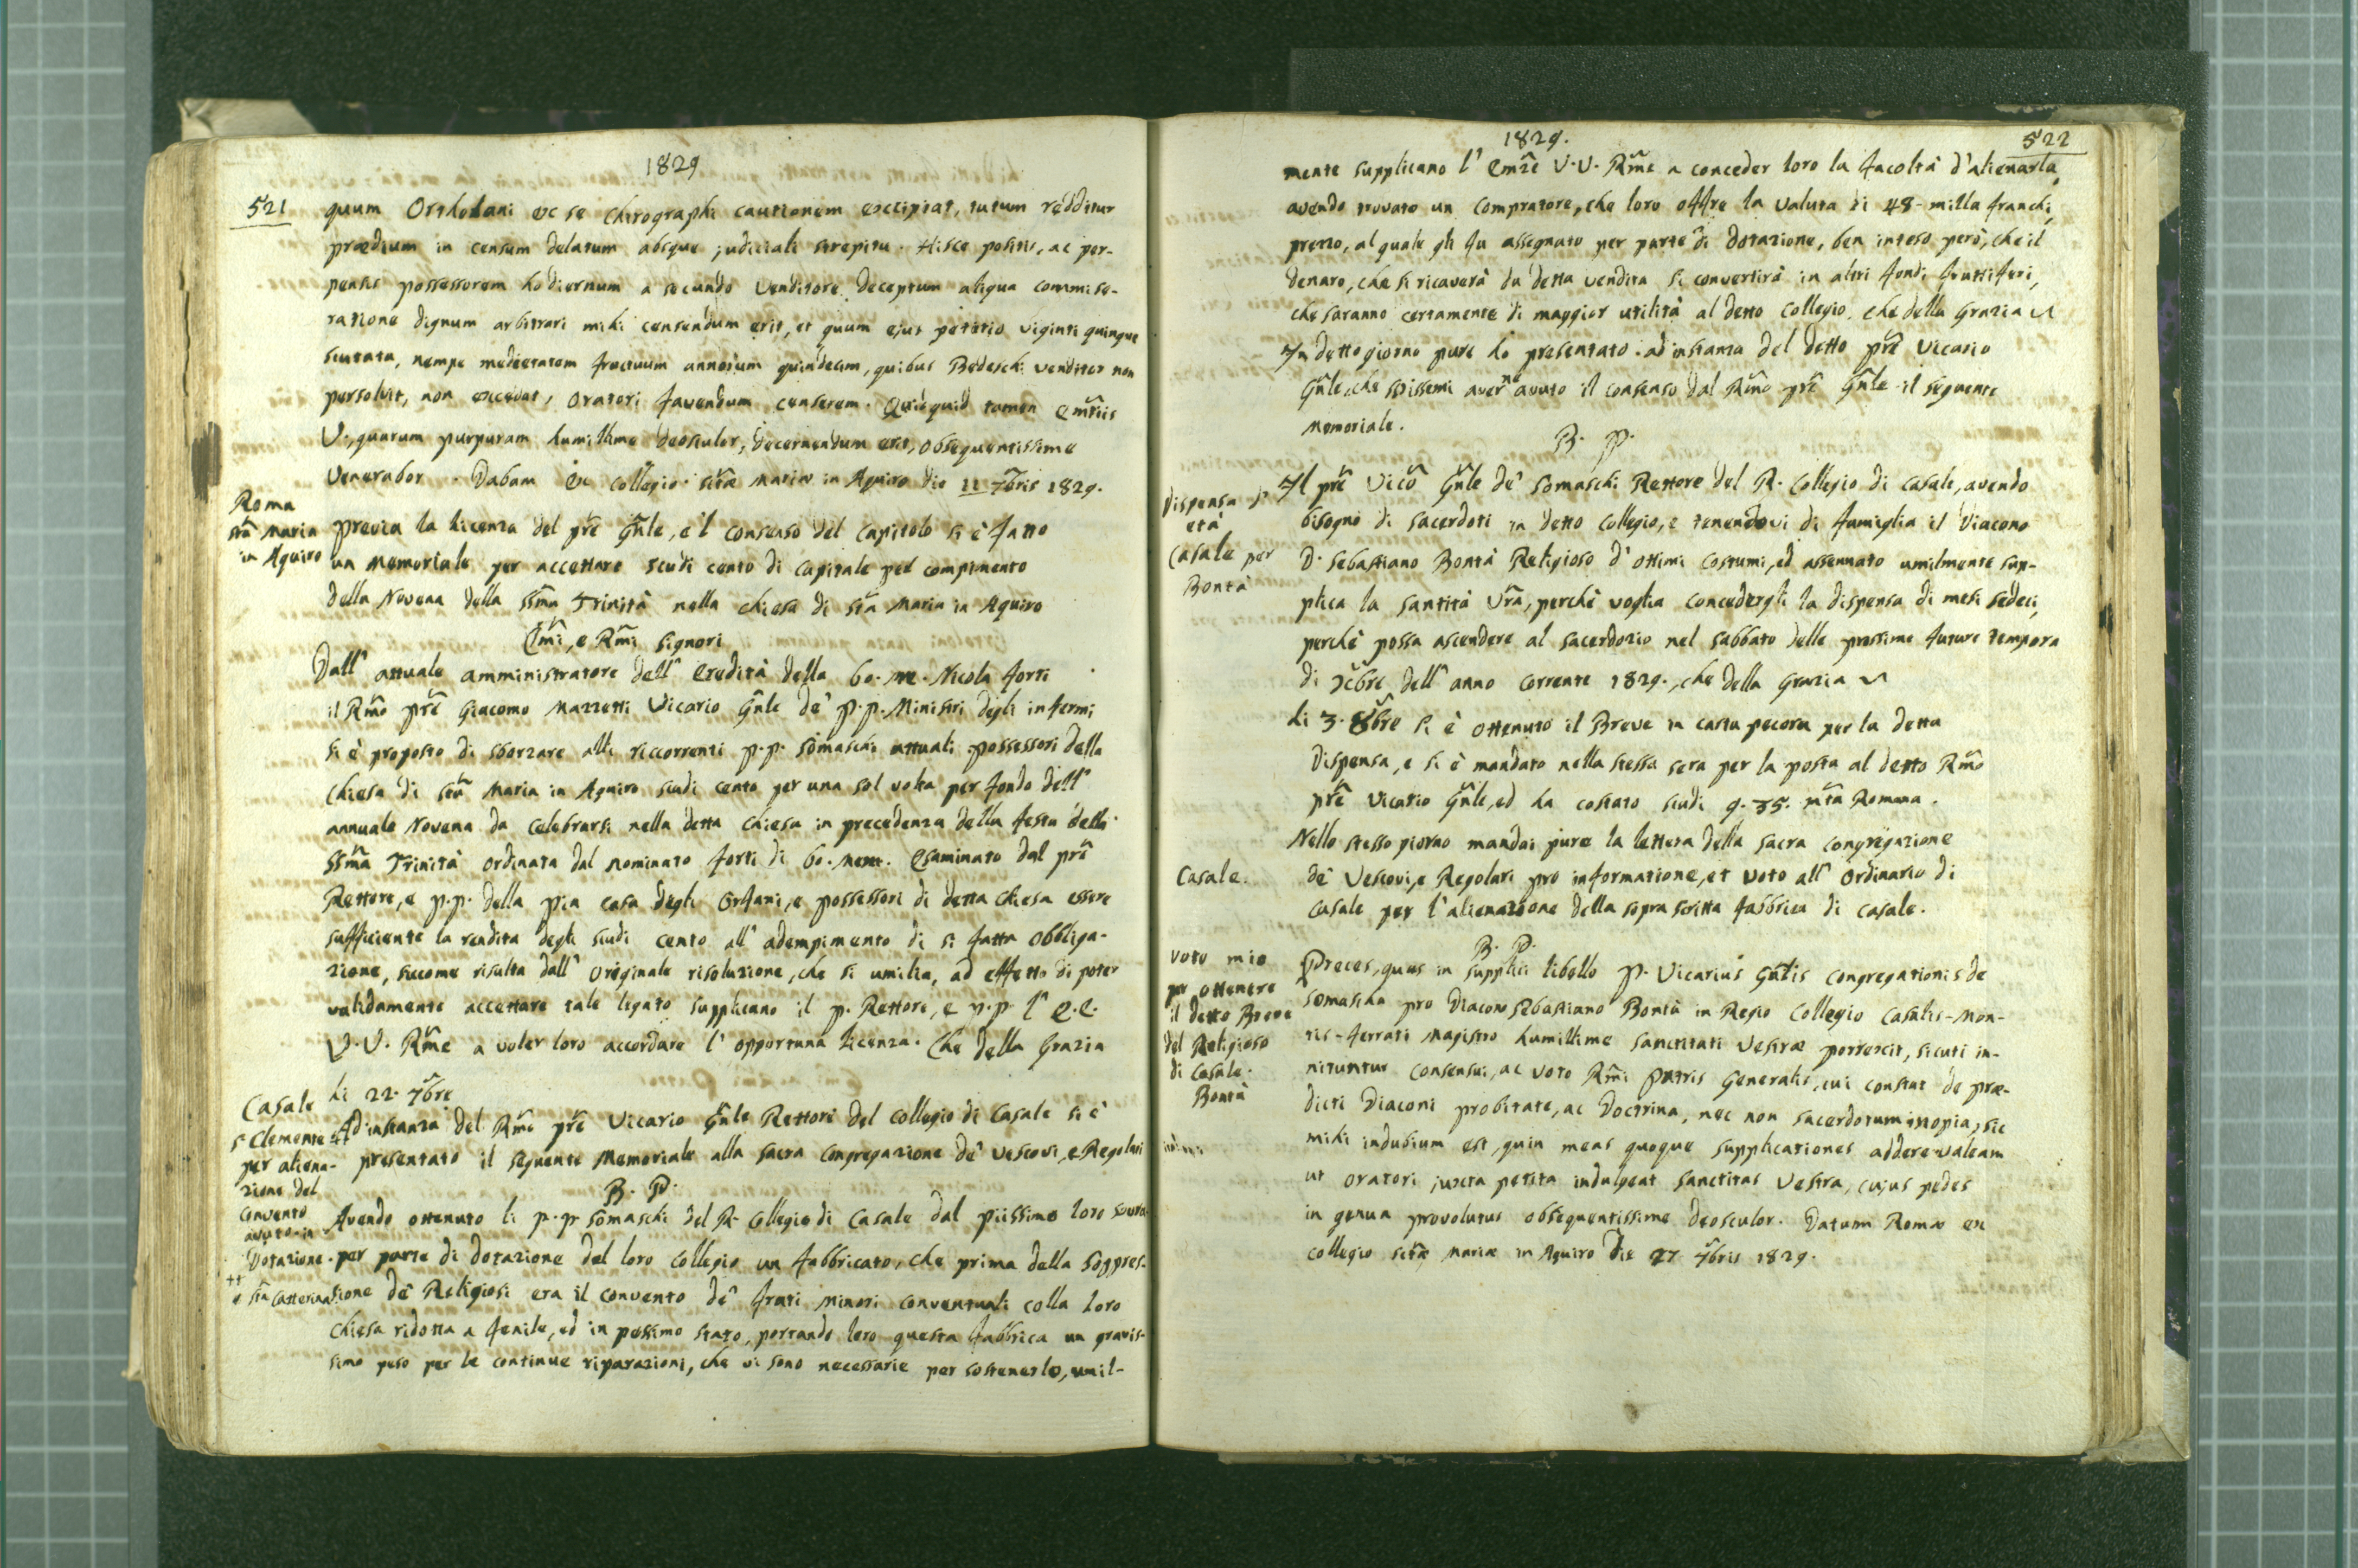 1829
521
quum Orthodani ex se Chirographi cautionem excipiat, tutum redditur
prædium in censum delatum absque judiciali strepitu. Hisce positis, ac per-
pensis possessorem hodiernum a secundo Venditore deceptum aliqua commise-
ratione dignum arbitrari mihi censendum erit, et quum ejus petitio viginti quinque
scutata, nempe medietatem fructuum annorum quindecim, quibus Bedeschi venditor non
persolvit, non excedat, Oratori favendum censerem. Quidquid tamen Emñis
V., quarum purpuram humillime deosculor, decernendum erit, obsequentissime
Venerabor. Dabam Ex Collegio Sctæ Mariæ in Aquiro die 11 7bris 1829.
Roma
Sta Maria
in Aquiro
Previa la licenza del pre Gnle, e'l consenso del Capitolo si è fatto
un Memoriale per accettare scudi cento di Capitale pel compimento
della Novena della SSma Trinità nella Chiesa di Sta Maria in Aquiro
Emi, e Rmi Signori
Dall' attuale amministratore dell' Eredità della bo. me. Nicola Forti
il Rmo Pre Giacomo Mazzetti Vicario Gnle de' P.P. Ministri degli infermi
si è proposto di sborzare alli riccorrenti P.P. Somaschi attuali possessori della
Chiesa di Sta Maria in Aquiro scudi cento per una sol volta per fondo dell'
annuale Novena da Celebrarsi nella detta Chiesa in precedenza della festa della
SSma Trinità ordinata dal nominato Forti di bo. mem. Esaminato dal pre
Rettore, e P.P. della Pia Casa degli Orfani, e possessori di detta Chiesa essere
sufficiente la rendita degli scudi cento all' adempimento di si fatta obbliga-
zione, siccome risulta dall' originale risoluzione, che si umilia, ad effetto di poter
validamente accettare tale legato supplicano il P. Rettore, e P.P. l' E.E.
V.V. Rme a voler loro accordare l' opportuna licenza. Che della Grazia
Casale
S. Clemente ++
per aliena-
zione del
Convento
avuto in
Dotazione.
++
e Sta Catterina
li 22. 7bre
Ad instanza del Rmo pre Vicario Gnle Rettore del Collegio di Casale si è
presentato il seguente Memoriale alla Sacra Congregazione de' Vescovi, e Regolari
B. P.
Avendo ottenuto li P.P. Somaschi del R. Collegio di Casale dal piissimo loro Sovra.
per parte di dotazione del loro Collegio un fabbricato, che prima della Soppres-
sione de' Religiosi era il convento de' frati Minori Conventuali colla loro
Chiesa ridotta a fenile, ed in pessimo stato, portando loro questa fabbrica un gravis-
simo peso per le continue riparazioni, che vi sono necessarie per sostenerlo, umil-
1829.
522
mente supplicano l' Emze V.V. Rme a conceder loro la facoltà d'alienarla,
avendo trovato un Compratore, che loro offre la valuta di 48-milla franchi,
prezzo, al quale gli fu assegnato per parte di dotazione, ben inteso però, che il
denaro, che si ricaverà da detta vendita si convertirà in altri fondi fruttiferi,
che saranno certamente di maggior utilità al detto Collegio. Che della Grazia
In detto giorno pure ho presentato ad instanza del detto pre Vicario
Gnle, che scrissemi averne avuto il consenso dal Rmo pre Gnle il seguente
Memoriale.
B. P.
Dispensa di
età
Casale per
Bontà
Il pre Vico Gnle de' Somaschi Rettore del R. Collegio di Casale, avendo
bisogno di Sacerdoti in detto Collegio, e tenendovi di famiglia il Diacono
D. Sebastiano Bontà Religioso d' ottimi costumi, ed assennato umilmente sup-
plica la Santità Vra, perchè voglia concedergli la dispensa di mesi sedeci,
perchè possa ascendere al sacerdozio nel sabbato delle prossime future tempora
di Xcbre dell' anno corrente 1829., che della Grazia
li 3. 8bre si è ottenuto il Breve in carta pecora per la detta
Dispensa, e si è mandato nella stessa sera per la posta al detto Rmo
pre Vicario Gnle, ed ha costato scudi 9.35. mta Romana.
Casale.
Nello stesso giorno mandai pure la lettera della Sacra Congregazione
de' Vescovi, e Regolari pro informatione, et voto all' Ordinario di
Casale per l'alienazione della soprascritta fabbrica di Casale.
B. P.
Voto mio
per ottenere
il detto Breve
del Religioso
di Casale.
Bontà
Preces, quas in supplici libello P. Vicarius Gnlis Congregationis de
Somascha pro Diacono Sebastiano Bontà in Regio Collegio Casalis-Mon-
tis-ferrati Magistro humillime Sanctitati Vestræ porrexit, sicuti in-
nituntur consensui, ac voto Rmi Patris Generalis, cui constat de præ-
dicti Diaconi probitate, ac Doctrina, nec non sacerdotum inopia, sic
mihi indubium est, quin meas quoque supplicationes addere valeam
ut oratori juxta petita indulgeat Sanctitas Vestra, cujus pedes
in genua provolutus obsequentissime deosculor. Datum Romæ ex
Collegio Sctæ Mariæ in Aquiro die 27 7bris 1829.